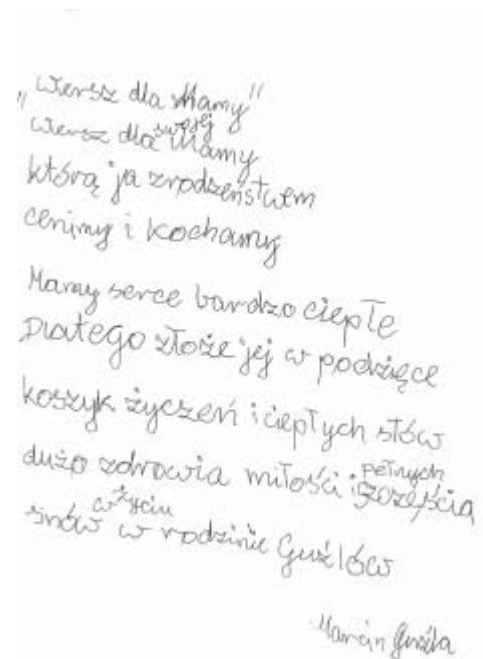 „Wiersz dla Mamy"
Wiersz dla swojej Mamy
którą ja zrodzeństwem
cenimy i kochamy
Mamy serce bardzo ciepłe
Dlatego złoże jej w podzięce
koszyk życzeń i ciepłych słów
dużo zdrowia miłości i pełnych szczęścia
snów w życiu w rodzinie Guźlów
Marcin Guźla